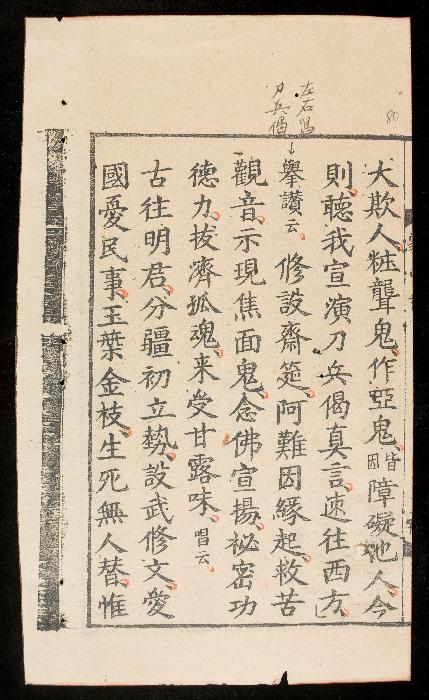 左右唱
刀兵偈
80
大欺人粧聾鬼作亞鬼皆因障礙他人今
則聽我宣演刀兵偈真言速往西方
舉讚云修設齋筵阿難因緣起救苦
觀音示現焦面鬼念佛宣揚祕密功
德力拔濟孤魂来受甘露味唱云
古往明君分疆初立勢設武修文愛
國憂民事玉葉金枝生死無人替惟